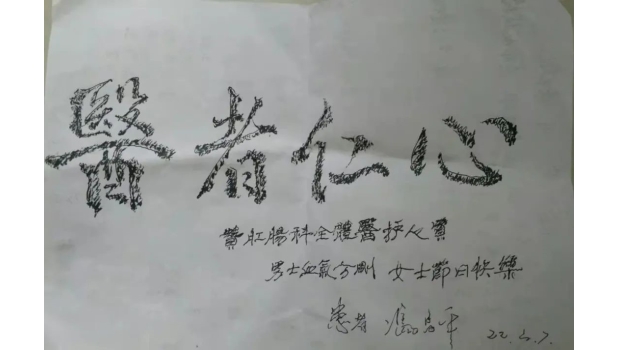 醫者仁心
肛腸科全體醫护人員
男士血氣方剛 女士節日快樂
患者 平 22.3.7.